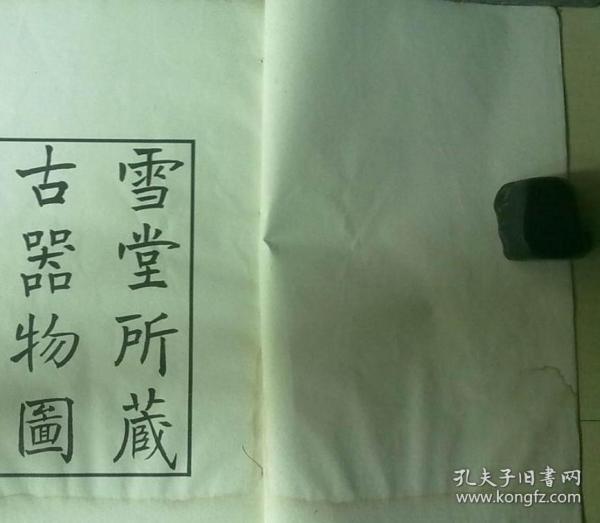 雪堂所蔵
古器物圖
孔夫子旧書网
www.kongfz.com